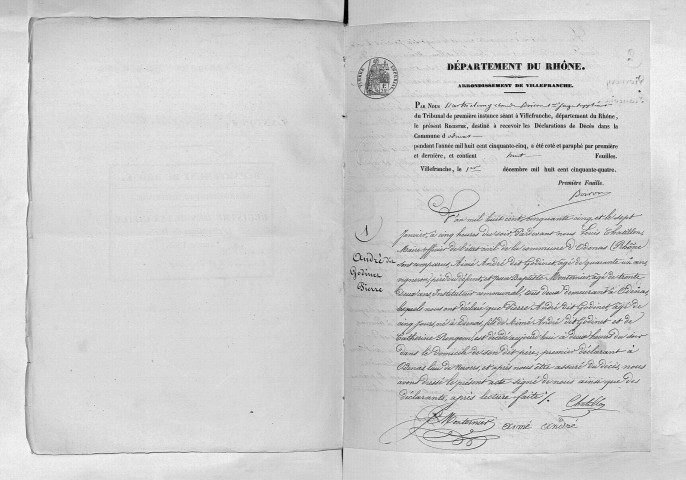 DÉPARTEMENT DU RHÔNE.
ARRONDISSEMENT DE VILLEFRANCHE.
PAR NOUS
du Tribunal de première instance séant à Villefranche, département du Rhône,
le présent REGISTRE, destiné à recevoir les Déclarations de Décès dans la
Commune d'Odenas
pendant l'année mil huit cent cinquante-cinq, a été coté et paraphé par première
et dernière, et contient huit Feuilles.
Villefranche, le 1er décembre mil huit cent cinquante-quatre.
Première Feuille.
1
André dit
Godinet
Pierre
L'an mil huit cent cinquante cinq et le sept
Janvier, à cinq heures du soir, Pardevant nous Louis Chatillon
Maire officier de l'état civil de la commune d'Odenas (Rhône)
sont comparus Aimé André dit Godinet, âgé de quarante un ans
vigneron, père du défunt, et Jean Baptiste Monternier, âgé de trente
deux ans, Instituteur communal, tous deux demeurant à Odenas,
lesquels nous ont déclaré que Pierre André dit Godinet, âgé de
cinq jours, né à Odenas, fils de Aimé André dit Godinet et de
Catherine est décédé aujourd'hui à deux heures du soir
dans le domicile de son dit père, premier déclarant à
Odenas lieu de et après nous être assuré du décès, nous
avons dressé le présent acte signé de nous ainsi que des
déclarants, après lecture faite /.
Chatillon
Monternier aimé andré